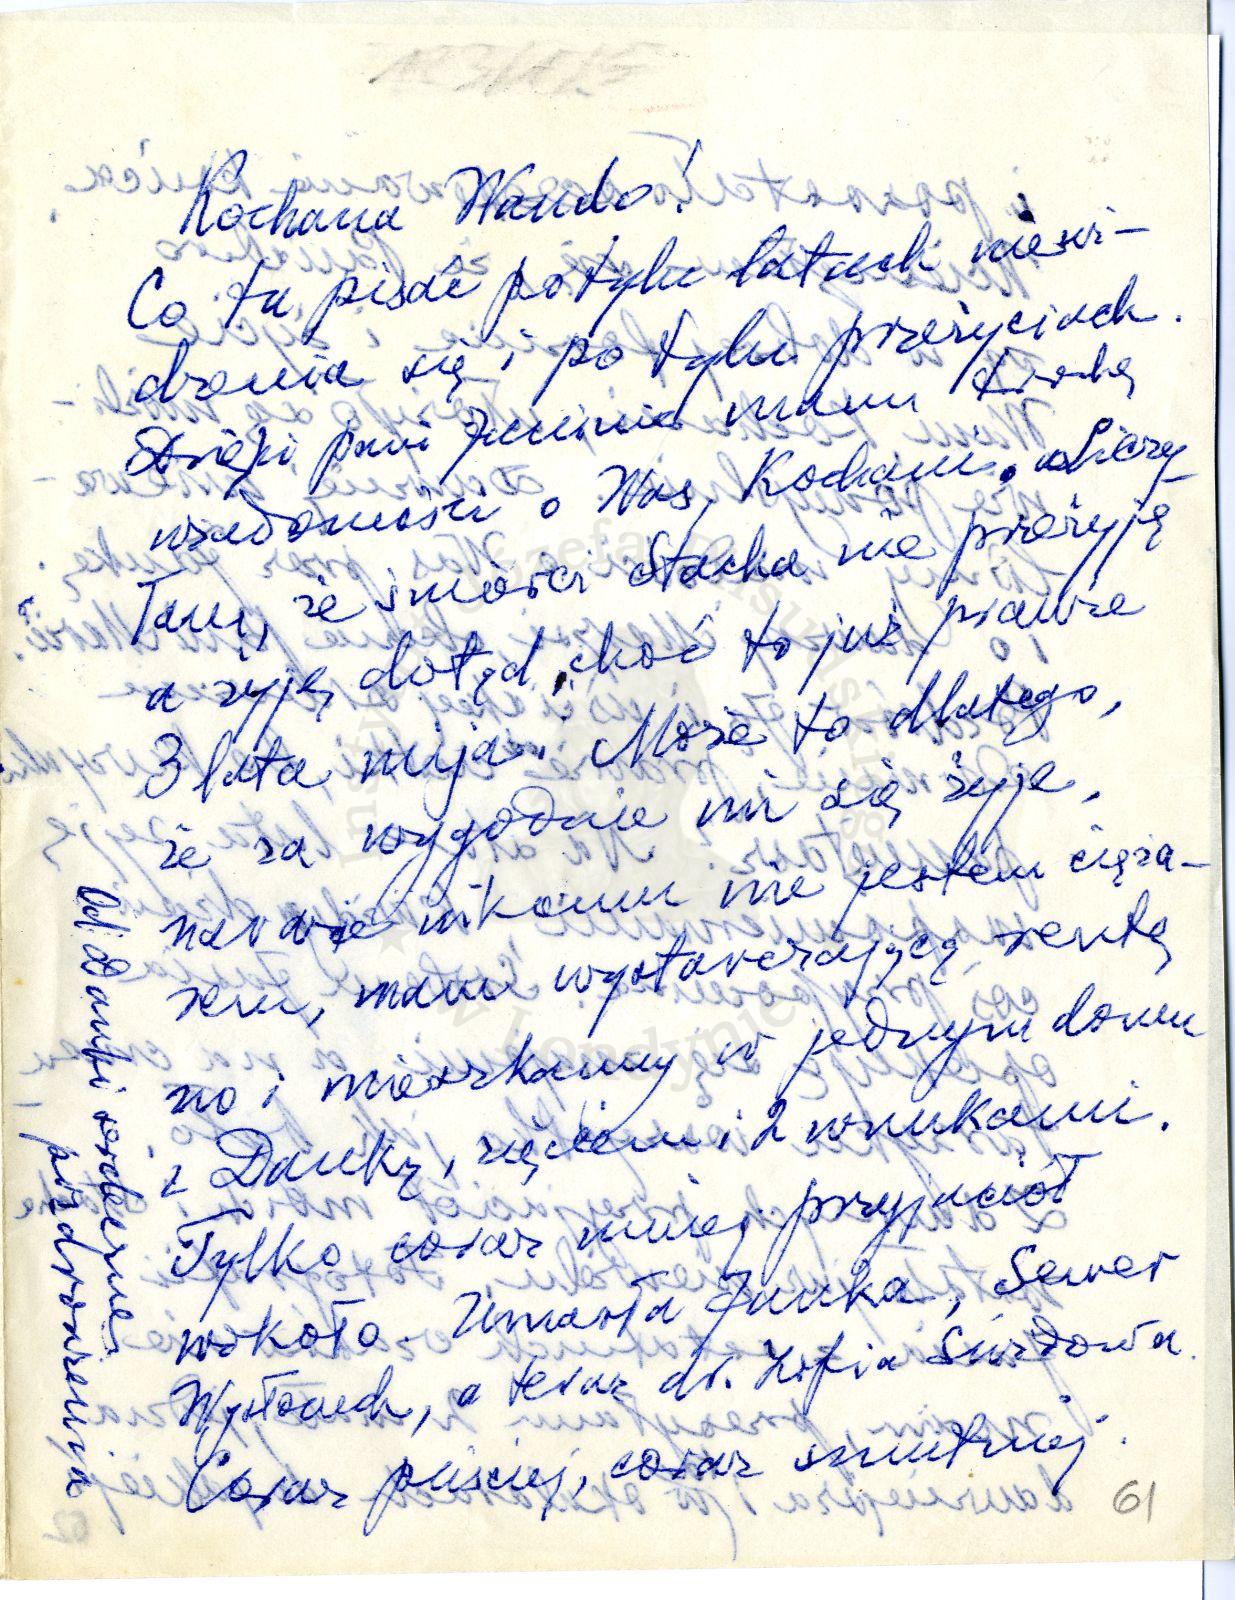 Kochana Wando!
Co tu pisać po tylu latach niewi-
dzenia się i po tylu przeżyciach.
Dzięki pani Janinie mam trochę
wiadomości o Was, Kochani. Liczy-
łam, że śmierci Stacha nie przeżyję
a żyję dotąd, choć to już prawie
3 lata mija. Może to dlatego,
że za wygodnie mi się żyje,
nikomu nie jestem cięża-
rem, mam wystarczającą rentę
no i mieszkamy w jednym domu
z Danką, zięciem i 2 wnukami.
Tylko coraz mniej przyjaciół
wokoło. Umarła Janka, Sewer
Wysłouch, a teraz dr. Zofia
Coraz puściej, coraz smutniej.
61
Od Danki serdeczne
pozdrowienia
Instytut Józefa Piłsudskiego
w Londynie